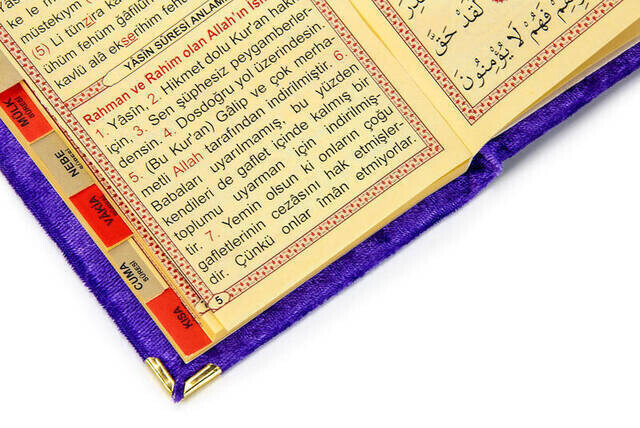 ke le m
müstekym
(5) Li tünzira ka
ühüm fehüm ğâfilûn
kavlü alâ ekserihim fehüm
YASİN SÛRESİ ANLAMI
Rahman ve Rahim olan Allah'ın
1. Yâsîn, 2. Hikmet dolu Kur'an hakkı
için. 3. Sen şüphesiz peygamberler-
densin. 4. Dosdoğru yol üzerindesin.
5. (Bu Kur'an) Gâlip ve çok merha-
metli Allah tarafından indirilmiştir. 6.
Babaları uyarılmamış, bu yüzden
kendileri de gaflet içinde kalmış bir
toplumu uyarman için indirilmiş-
tir. 7. Yemin olsun ki onların çoğu
gafletlerinin cezâsını hak etmişler-
dir. Çünkü onlar îmân etmiyorlar.
5
لَقَدْ حَقَّ
فَهُمْ لَا يُؤْمِنُونَ
MÜLK
SÛRESİ
NEBE
VAKIA
CUMA
SÛRESİ
KISA